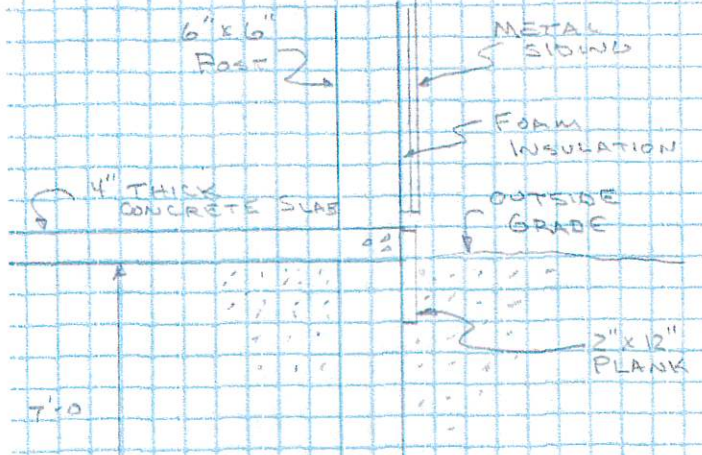 6" x 6"
POST
METAL
SIDING
FOAM
INSULATION
4" THICK
CONCRETE SLAB
OUTSIDE
GRADE
2" x 12"
PLANK
7'-0